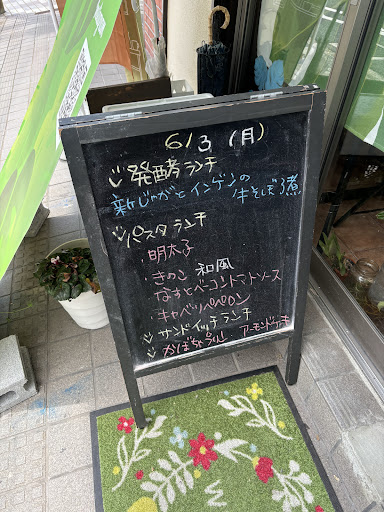 6/3(月)
発酵ランチ
新じゃがとインゲンの
牛そぼろ煮
パスタランチ
明太子
きのこ 和風
なすとベーコントマトソース
キャベツペペロン
サンドイッチランチ
かぼちゃ アーモンド